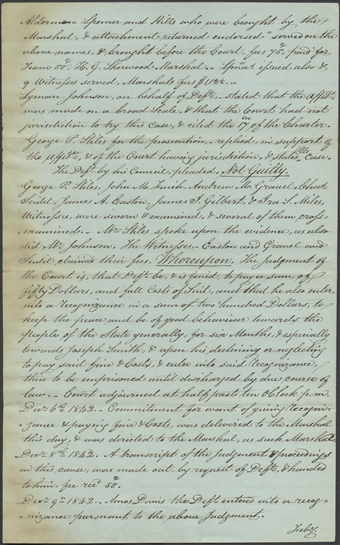 Aldermen Spencer and Hills who were brought by the
Marshal, & attachment returned endorsed "served on the
above names, & brought before the Court, fees 75c. paid for
H. G. Sherwood Marshal. Spina issued also &
9 Witnesses served. Marshals fees $
Lyman Johnson, on behalf of Defts. stated that the Affidt.
was made on a broad Scale, & that the Court had not
jurisdiction to try this Case, & cited the 17th of the Charter.
George P. Stiles for the prosecution, replied in support of
the Affidt. & of the Court having jurisdiction, & stated Case.
The Deft. by his Council pleaded, Not Guilty.
George P. Stiles, John M. Finch, Andrew M. Gravel
James A. Easton, James S. Gilbert, & Ira S. Miles
Witnesses, were sworn & examined, & several of them cross
examined. Mr. Stiles spoke upon the evidence, as also
did Mr. Johnson. The Witnesses Easton and Gravel and
claimed their fees. Whereupon, The judgment of
the Court is, that Deft. be, & is fined, to pay a sum of
fifty Dollars, and full Costs of Suit, and that he also enter
into a recognizance in a sum of two hundred Dollars, to
keep the peace and be of good behaviour towards the
people of the State generally, for six Months, & especially
towards Joseph Smith, & upon his declining or neglecting
to pay said fine & Costs, & enter into said Recognizance,
then to be imprisoned until discharged by due course of
law. Court adjourned at half past ten O'Clock p.m.
Decr. 6th. 1842. Commitment for want of giving recogni-
zance & paying fine & Costs, was delivered to the Marshal
this day, & was directed to the Marshal, as such Marshal
Decr. 8th. 1842. A transcript of the Judgment & proceedings
in this cause, was made out by request of Deft. & handed
to him, fee recd. 50c.
Decr. 9th. 1842. Amos Davis the Deft. entered into a recog-
-nizance pursuant to the above Judgment.